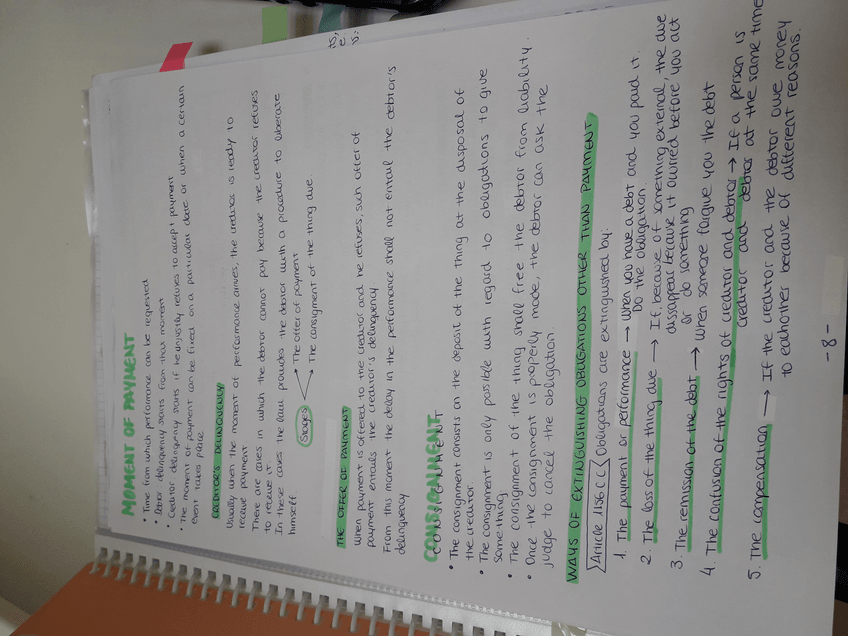 MOMENT OF PAYMENT
• Time from which performance can be requested
• Debtor delinquency starts from that moment
• Creditor delinquency starts if he unjustly refuses to accept payment
• The moment of payment can be fixed on a particular date or when a certain
event takes place
CREDITOR'S DELINQUENCY
Usually when the moment of performance arrives, the creditor is ready to
receive payment
There are cases in which the debtor cannot pay because the creditor refuses
to receive it
In these cases the law provides the debtor with a procedure to liberate
himself
Stages → The offer of payment
→ The consigment of the thing due.
THE OFFER OF PAYMENT
When payment is offered to the creditor and he refuses, such offer of
payment entails the creditor's delinquency
From this moment the delay in the performance shall not entail the debtor's
delinquency
CONSIGNMENT
• The consignment consists on the deposit of the thing at the disposal of
the creditor.
• The consignment is only possible with regard to obligations to give
something
• The consignment of the thing shall free the debtor from liability.
• Once the consignment is properly made, the debtor can ask the
judge to cancel the obligation.
WAYS OF EXTINGUISHING OBLIGATIONS OTHER THAN PAYMENT
Article 1156 CC Obligations are extinguished by:
1. The payment or performance → When you have a debt and you paid it.
Do the obligation.
2. The loss of the thing due → If, because of something external, the due
dissappear because it ocurred before you act
or do something
3. The remission of the debt → When someone forgive you the debt
4. The confusion of the rights of creditor and debtor → If a person is
creditor and debtor at the same time
5. The compensation → If the creditor and the debtor owe money
to eachother because of different reasons.
-8-